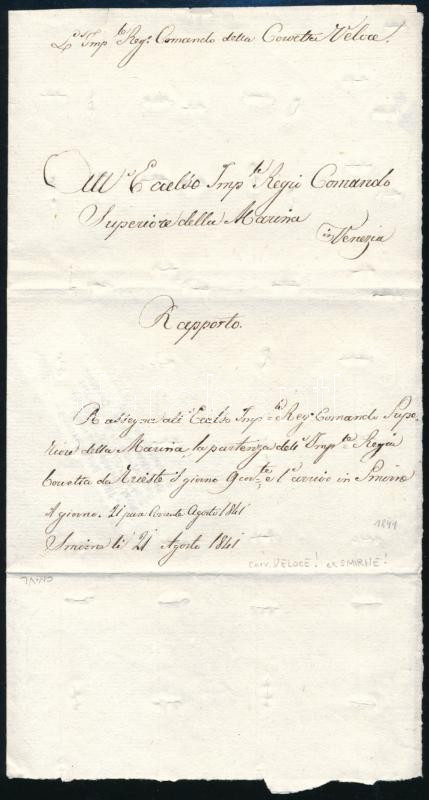 L'Imp.te Reg.o Comando della Corvetta Veloce.
All'Eccelso Imp.le Regio Comando
Superiore della Marina
in Venezia
Rapporto.
Rassegna all'Eccelso Imp.le Reg.o Comando Supe-
riore della Marina, la partenza dell'Imp.le Regia
Corvetta da Trieste il giorno 9 e l'arrivo in Smirne
il giorno. 21 pure Corrente Agosto 1841
Smirne li 21 Agosto 1841
1841
corv. VELOCE! ex SMIRNE!